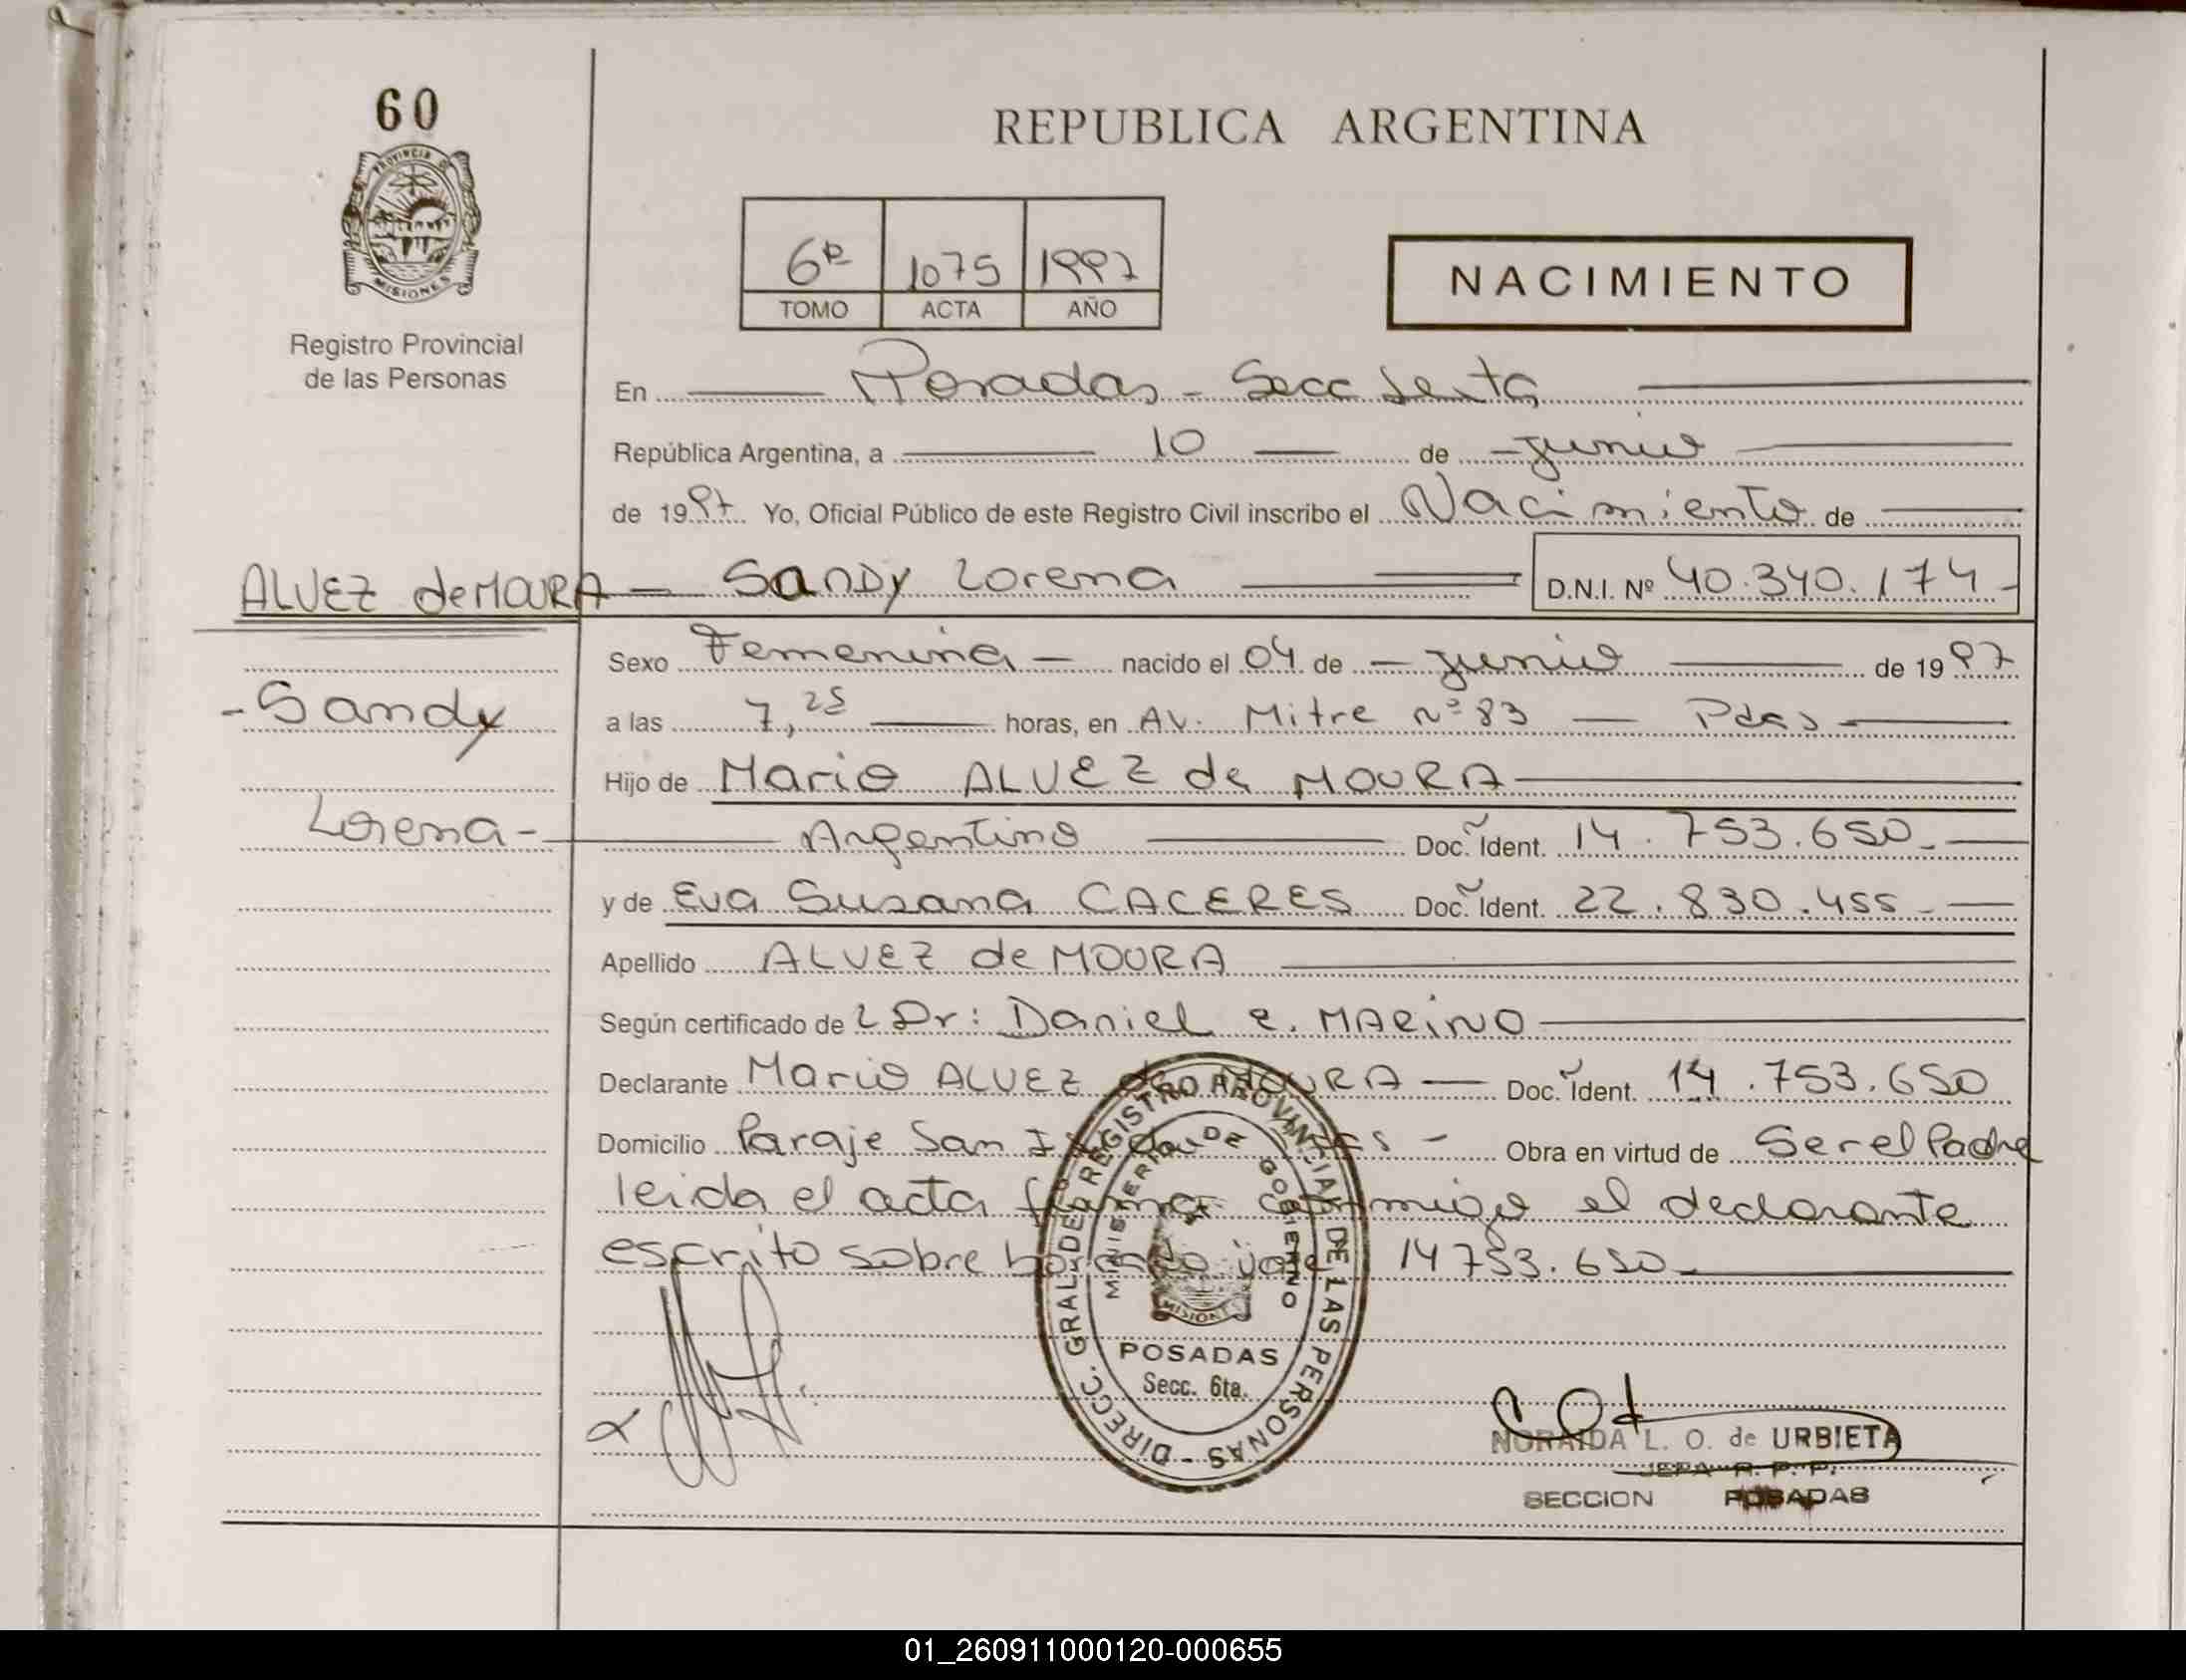 60
PROVINCIA D
MISIONES
Registro Provincial
de las Personas
REPUBLICA ARGENTINA
6ta 1075 1997
TOMO ACTA AÑO
NACIMIENTO
En Posadas - Secc Sexta
República Argentina, a 10 de junio
de 1997 Yo, Oficial Público de este Registro Civil inscribo el Nacimiento de
ALVEZ de MOURA - Sandy Lorena D.N.I. Nº 40.340.174-
Sexo Femenina - nacido el 04 de - junio de 1997
- Sandy
a las 7,25 horas, en AV. Mitre nº 83 - Pdas -
Hijo de Mario ALVEZ de MOURA
Lorena - Argentino Doc. Ident. 14.753.650.-
y de Eva Susana CACERES Doc. Ident. 22.830.455.-
Apellido ALVEZ de MOURA
Según certificado de Dr: Daniel e. MARINO
Declarante Mario ALVEZ de MOURA - Doc. Ident. 14.753.650
Domicilio Paraje San - Obra en virtud de Ser el Padre
leida el acta firma conmigo el declarante
escrito sobre borrado vale 14753.650.-
DIRECC. GRAL. DEL REGISTRO PROVINCIAL DE LAS PERSONAS -
MINISTERIO DE GOBIERNO
MISIONES
POSADAS
Secc. 6ta.
NORAIDA L. O. de URBIETA
JEFA R. P. P.
SECCION POSADAS
01_260911000120-000655